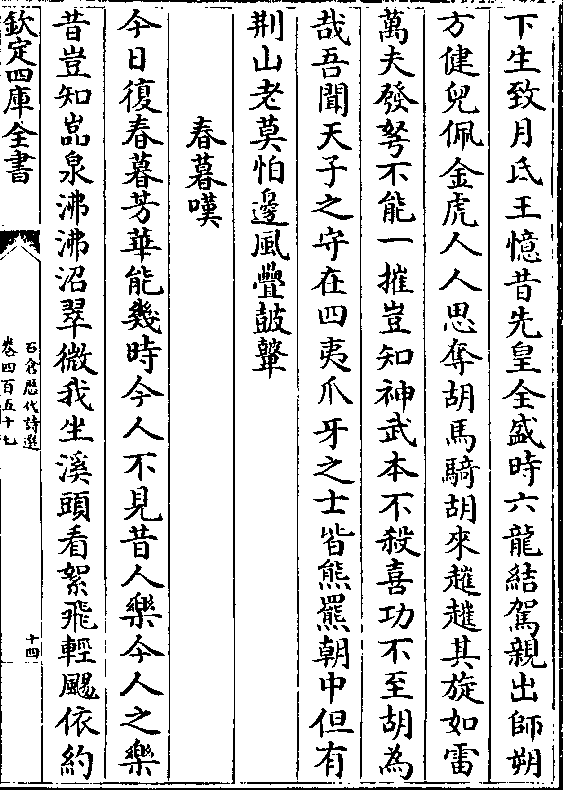 下生致月氏王憶昔先皇全盛時六龍結駕親出師朔
方健兒佩金虎人人思奪胡馬騎胡來趯趯其旋如雷
萬夫發弩不能一摧豈知神武本不殺喜功不至胡為
哉吾聞天子之守在四夷爪牙之士皆熊羆朝中但有
荆山老莫怕邊風疊鼓鼙
春暮嘆
今日復春暮芳華能幾時今人不見昔人樂今人之樂
昔豈知嵓泉沸沸沼翠微我坐溪頭看絮飛輕颺依約
欽定四庫全書
石倉歷代詩選
卷四百五十七
十四